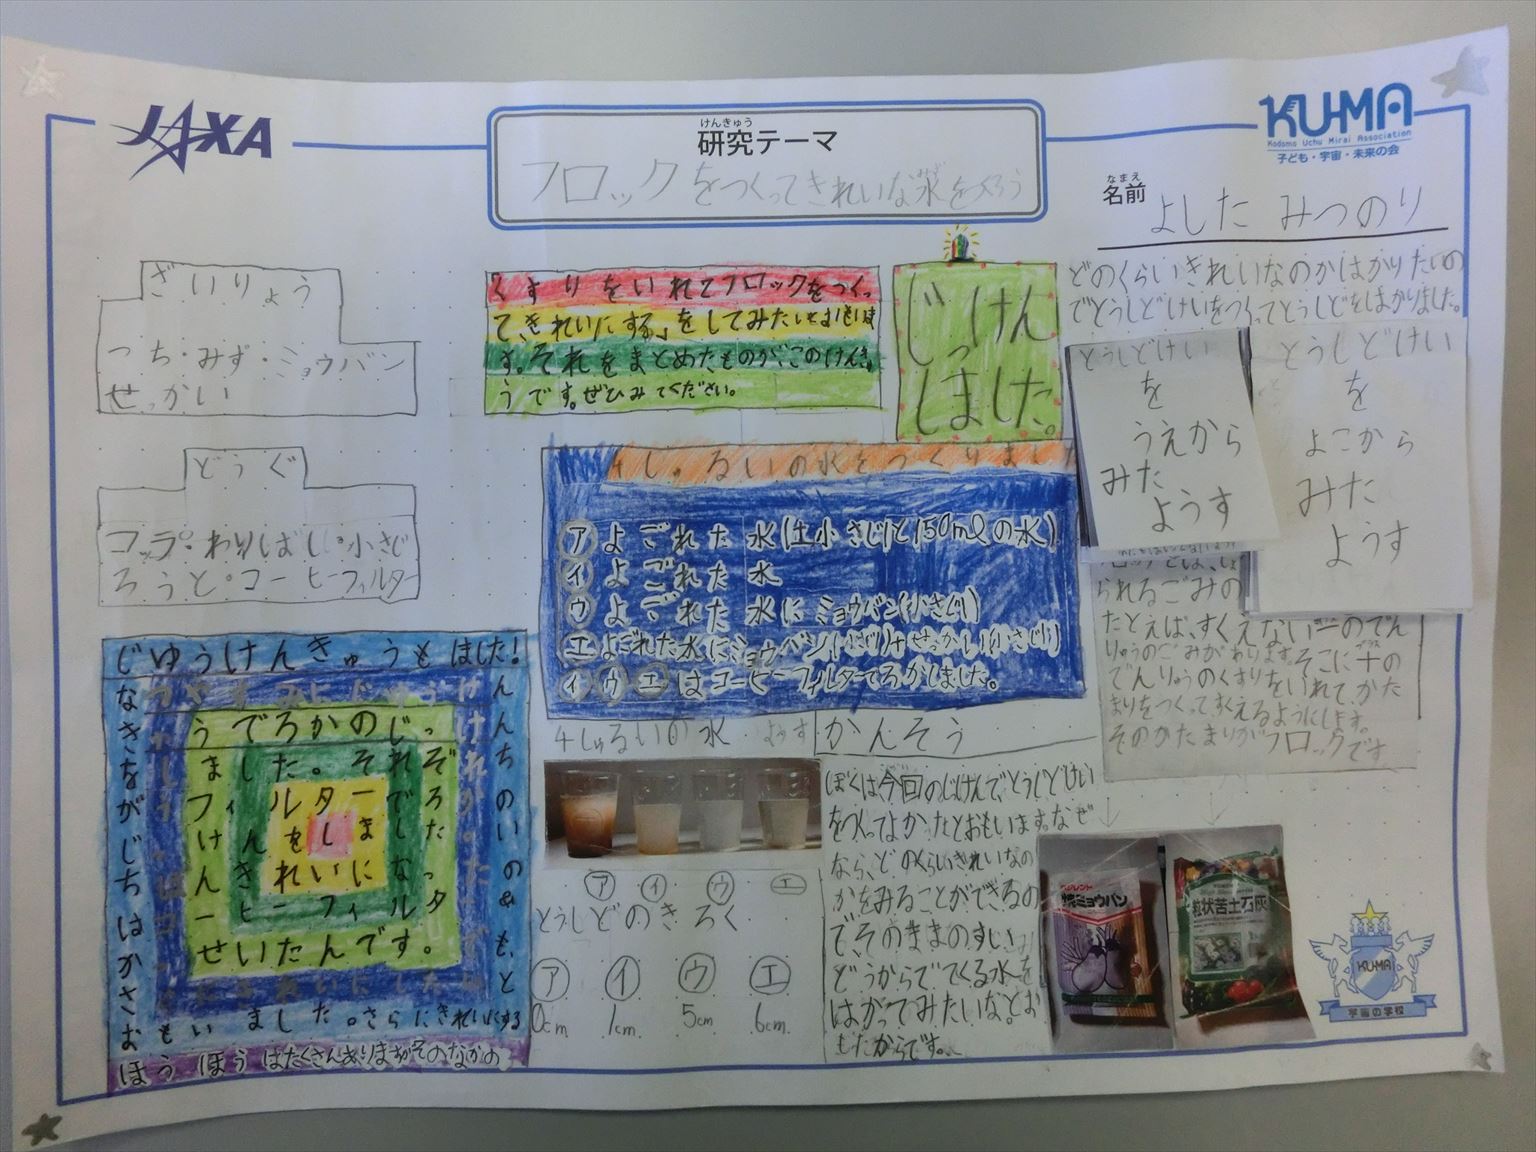 JAXA
けんきゅう
研究テーマ
フロックをつくってきれいな水をつくろう
KU-MA
Kodomo Uchu Mirai Association
子ども・宇宙・未来の会
なまえ
名前
よした みつのり
ざいりょう
つち・みず・ミョウバン
せっかい
どうぐ
コップ・わりばし・小さじ
ろうと・コーヒーフィルター
くすりをいれてフロックをつくっ
て、きれいにする」をしてみたいとおもいま
す。それをまとめたものが、このけんきゅ
うです。ぜひみてください。
じっけん
しました。
4しゅるいの水をつくりました
ア よごれた水(土小さじ1と150mlの水)
イ よごれた水
ウ よごれた水にミョウバン(小さじ1)
エ よごれた水にミョウバン(小さじ1)+せっかい(小さじ1)
イ ウ エ はコーヒーフィルターでろかしました。
どのくらいきれいなのかはかりたいの
でとうしどけいをつくってとうしどをはかりました。
とうしどけい
を
うえから
みた
ようす
とうしどけい
を
よこから
みた
ようす
られるごみの
たとえば、すくえない一のでん
りゅうのごみがあります。そこに十の
でんりゅうのくすりをいれて、かた
まりをつくってすくえるようにします。
そのかたまりがフロックです
じゆうけんきゅうもはました!
うでろかのじっ
ました。それぞ
フィルターでろ
せいたんです。
おもいました。さらにきれいにする
ほうほうはたくさんありますがそのなかの
4しゅるいの水 ようす
ア イ ウ エ
とうしどのきろく
ア イ ウ エ
0cm 1cm 5cm 6cm
かんそう
ぼくは今回のじけんで、とうしどけい
をつくってよかったとおもいます。なぜ
なら、どのくらいきれいなの
かをみることができるの
で、そのままのすいど
うからでてくる水を
はかってみたいな。とお
もたからです。
焼ミョウバン
粒状苦土石灰
KU-MA
宇宙の学校